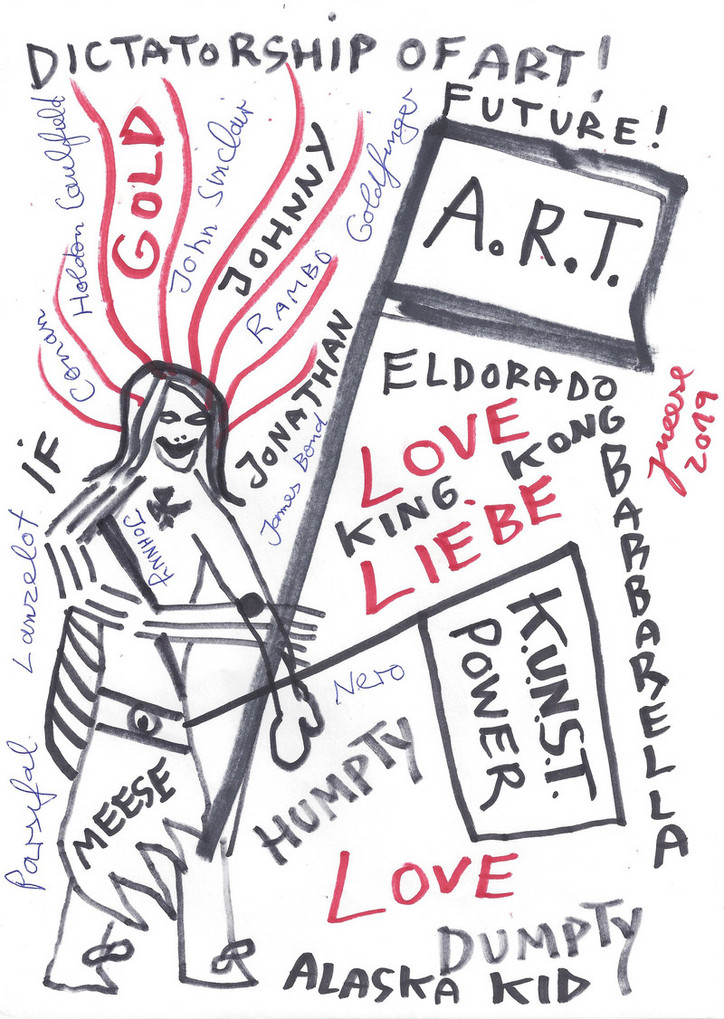 DICTATORSHIP OF ART!
FUTURE!
A.R.T.
Holden Caulfield
GOLD
John Sinclair
JOHNNY
Goldfinger
RAMBO
Conan
JONATHAN
James Bond
ELDORADO
LOVE
KING KONG
LIEBE
BARBARELLA
Meese
2019
IF
JOHNNY
Lanzelot
Parsifal
Nero
K.U.N.S.T.
POWER
HUMPTY
MEESE
LOVE
DUMPTY
ALASKA KID